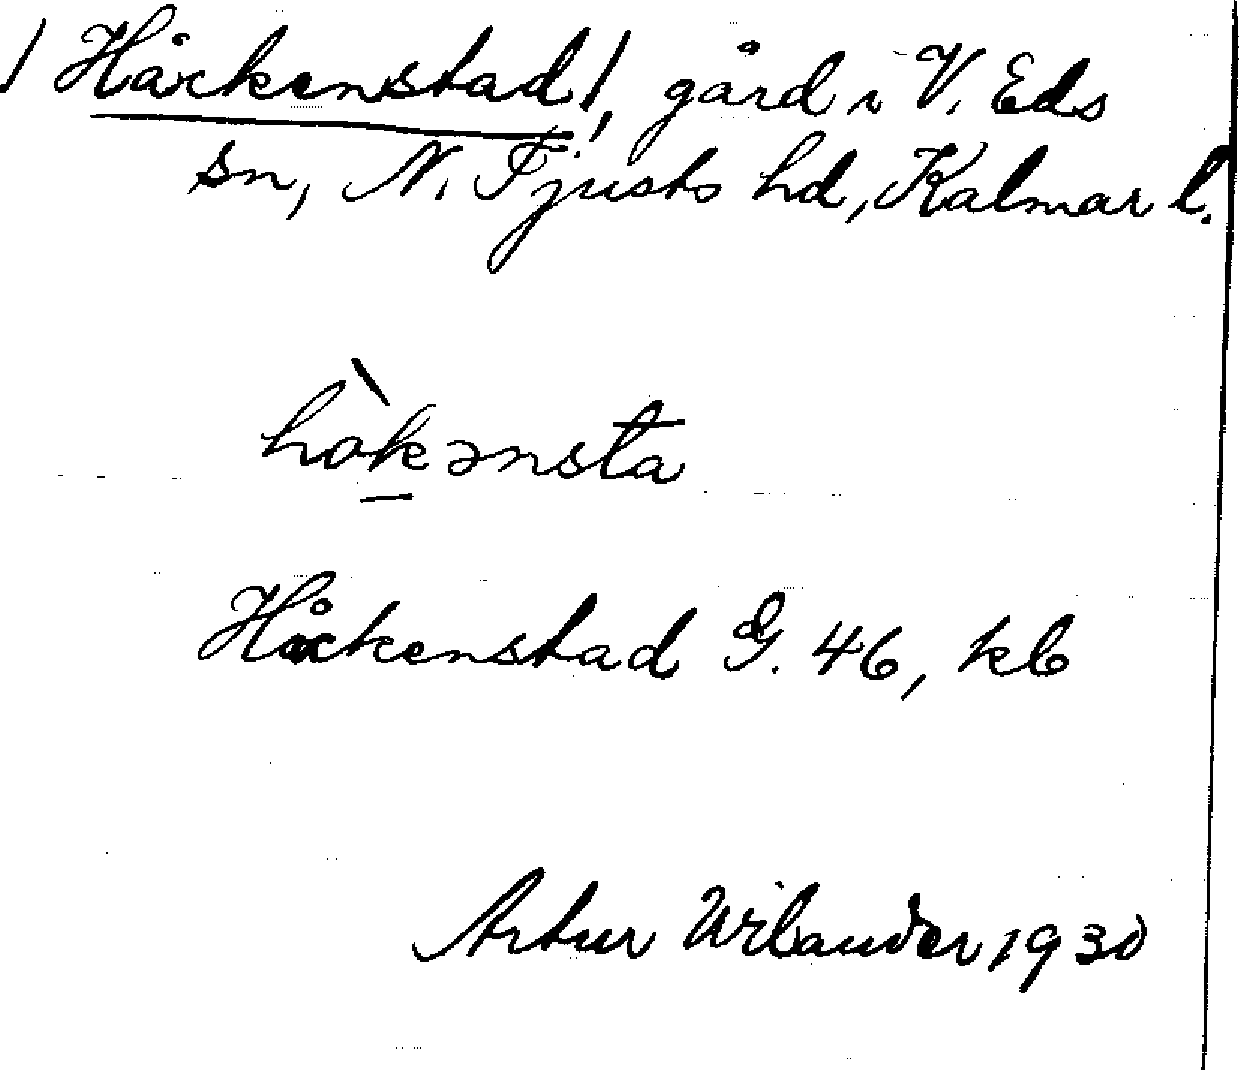 /Håckenstad/, gård i V. Eds
sn, N. Tjusts hd, Kalmar l.
hòkənsta
Håckenstad G. 46, kb
Artur Wilander 1930